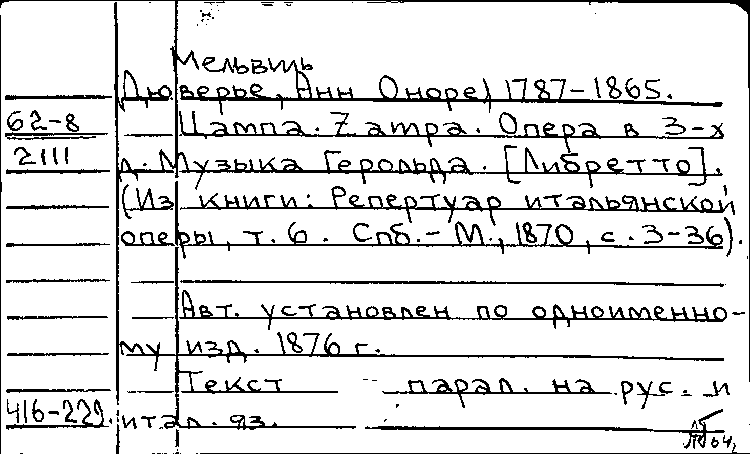 Мельвиль
(Дюверье, Анн Оноре) 1787-1865.
62-8
Цампа. Zampa. Опера в 3-х
2111
д. Музыка Герольда. [Либретто].
(Из книги: Репертуар итальянской
оперы, т. 6. Спб.-М., 1870, с. 3-36).
Авт. установлен по одноименно-
му изд. 1876 г.
Текст парал. на рус. и
416-229. итал. яз.
64